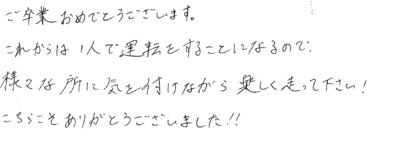 ご卒業おめでとうございます。
これからは1人で運転をすることになるので、
様々な所に気を付けながら楽しく走って下さい!
こちらこそありがとうございました!!